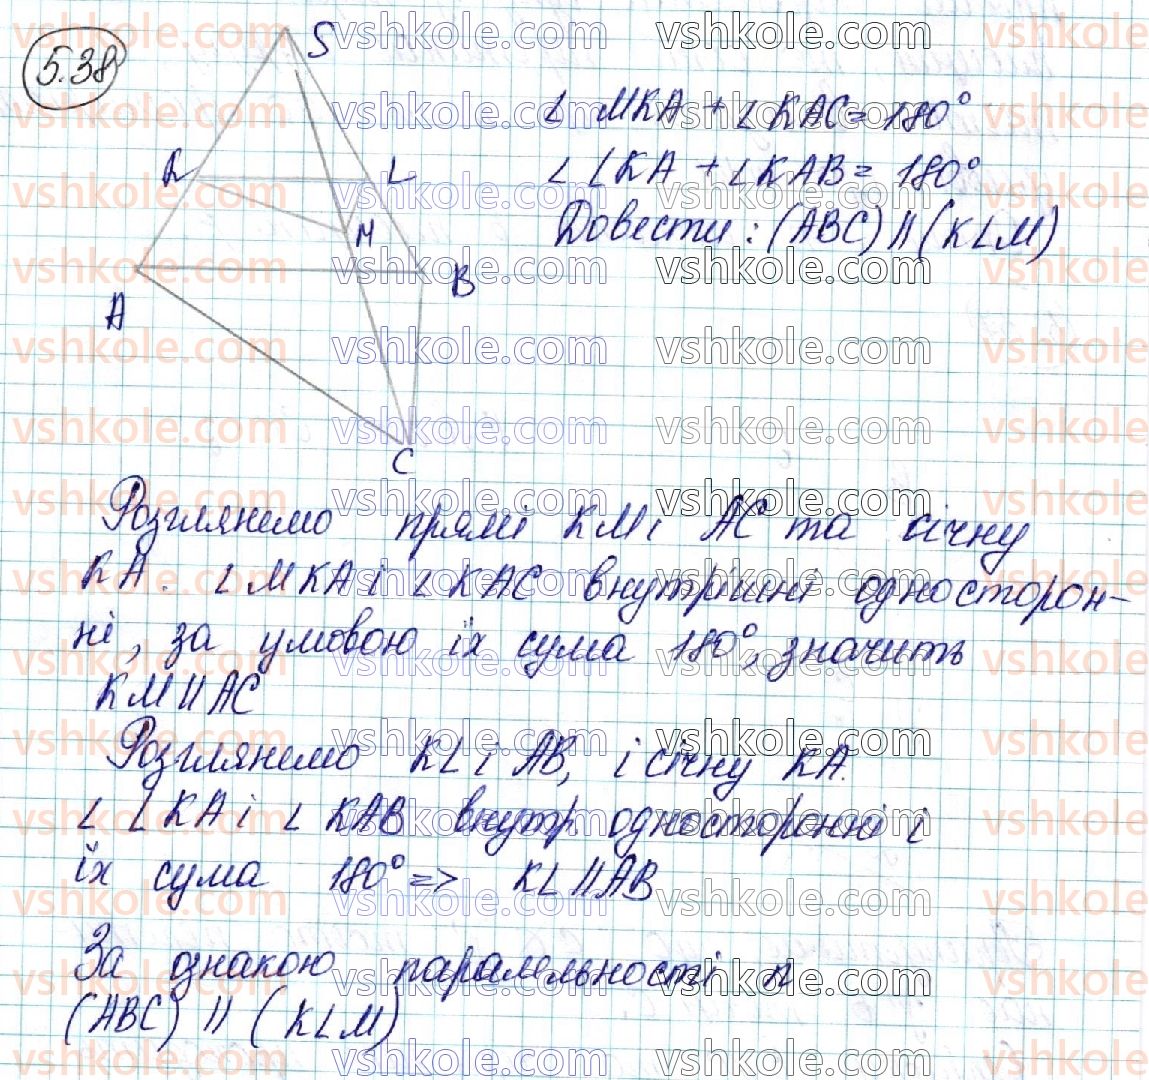 5.38
S
∠ MKA + ∠KAC = 180°
∠ LKA + ∠KAB = 180°
Довести: (ABC) || (KLM)
K
L
M
A
B
C
Розглянемо прямі KM і AC та січну
KA. ∠MKA і ∠KAC внутрішні односторон-
ні, за умовою їх сума 180°, значить
KM || AC
Розглянемо KL і AB, і січну KA.
∠ LKA і ∠ KAB внутр. односторонні і
їх сума 180° => KL || AB
За ознакою паралельності п
(ABC) || (KLM)
vshkole.com